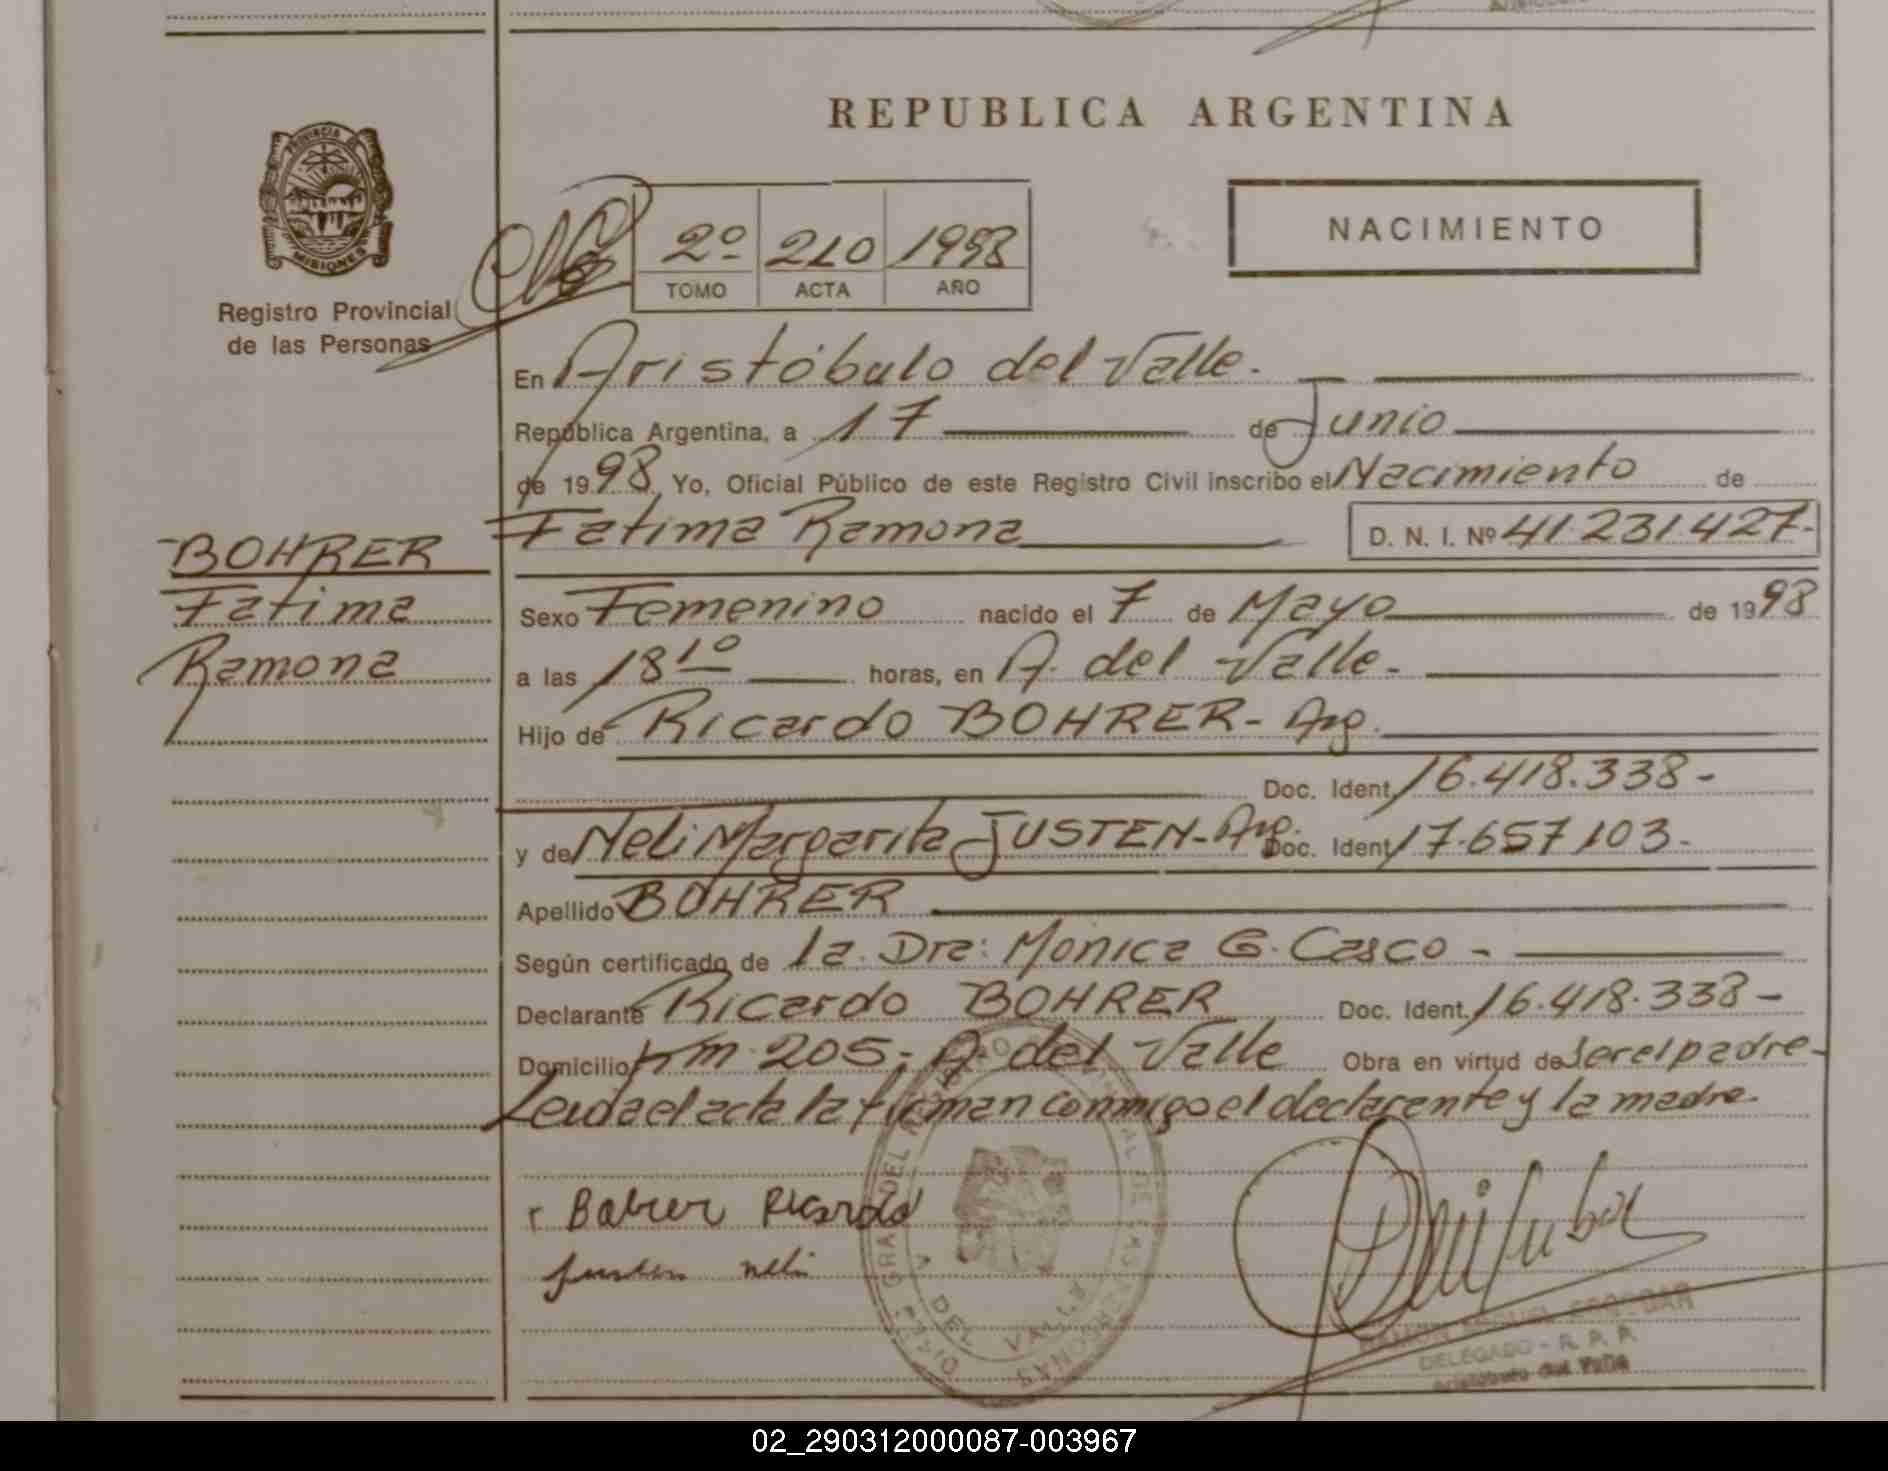 REPUBLICA ARGENTINA
PROVINCIA DE
MISIONES
Registro Provincial
de las Personas
NACIMIENTO
2º 210 1998
TOMO ACTA AÑO
En Aristóbulo del Valle.
República Argentina, a 17 de Junio
de 1998 Yo, Oficial Público de este Registro Civil inscribo el Nacimiento de
Fatima Ramona D. N. I. Nº 41.231.427-
BOHRER
Fatima
Ramona
Sexo Femenino nacido el 7 de Mayo de 1998
a las 18 10 horas, en A. del Valle-
Hijo de Ricardo BOHRER- Arg.
Doc. Ident. 16.418.338-
y de Neli Margarita JUSTEN- Arg. Doc. Ident. 17.657.103-
Apellido BOHRER
Según certificado de la Dra: Monica G. Casco -
Declarante Ricardo BOHRER Doc. Ident. 16.418.338-
Domicilio Km 205- A del Valle Obra en virtud de ser el padre-
Leida el acta la firman conmigo el declarante y la madre.
Ricardo
Justen neli
DEL VALLE
RAMON MIGUEL ESCOBAR
DELEGADO - R. P. P.
Aristóbulo del Valle
02_290312000087-003967